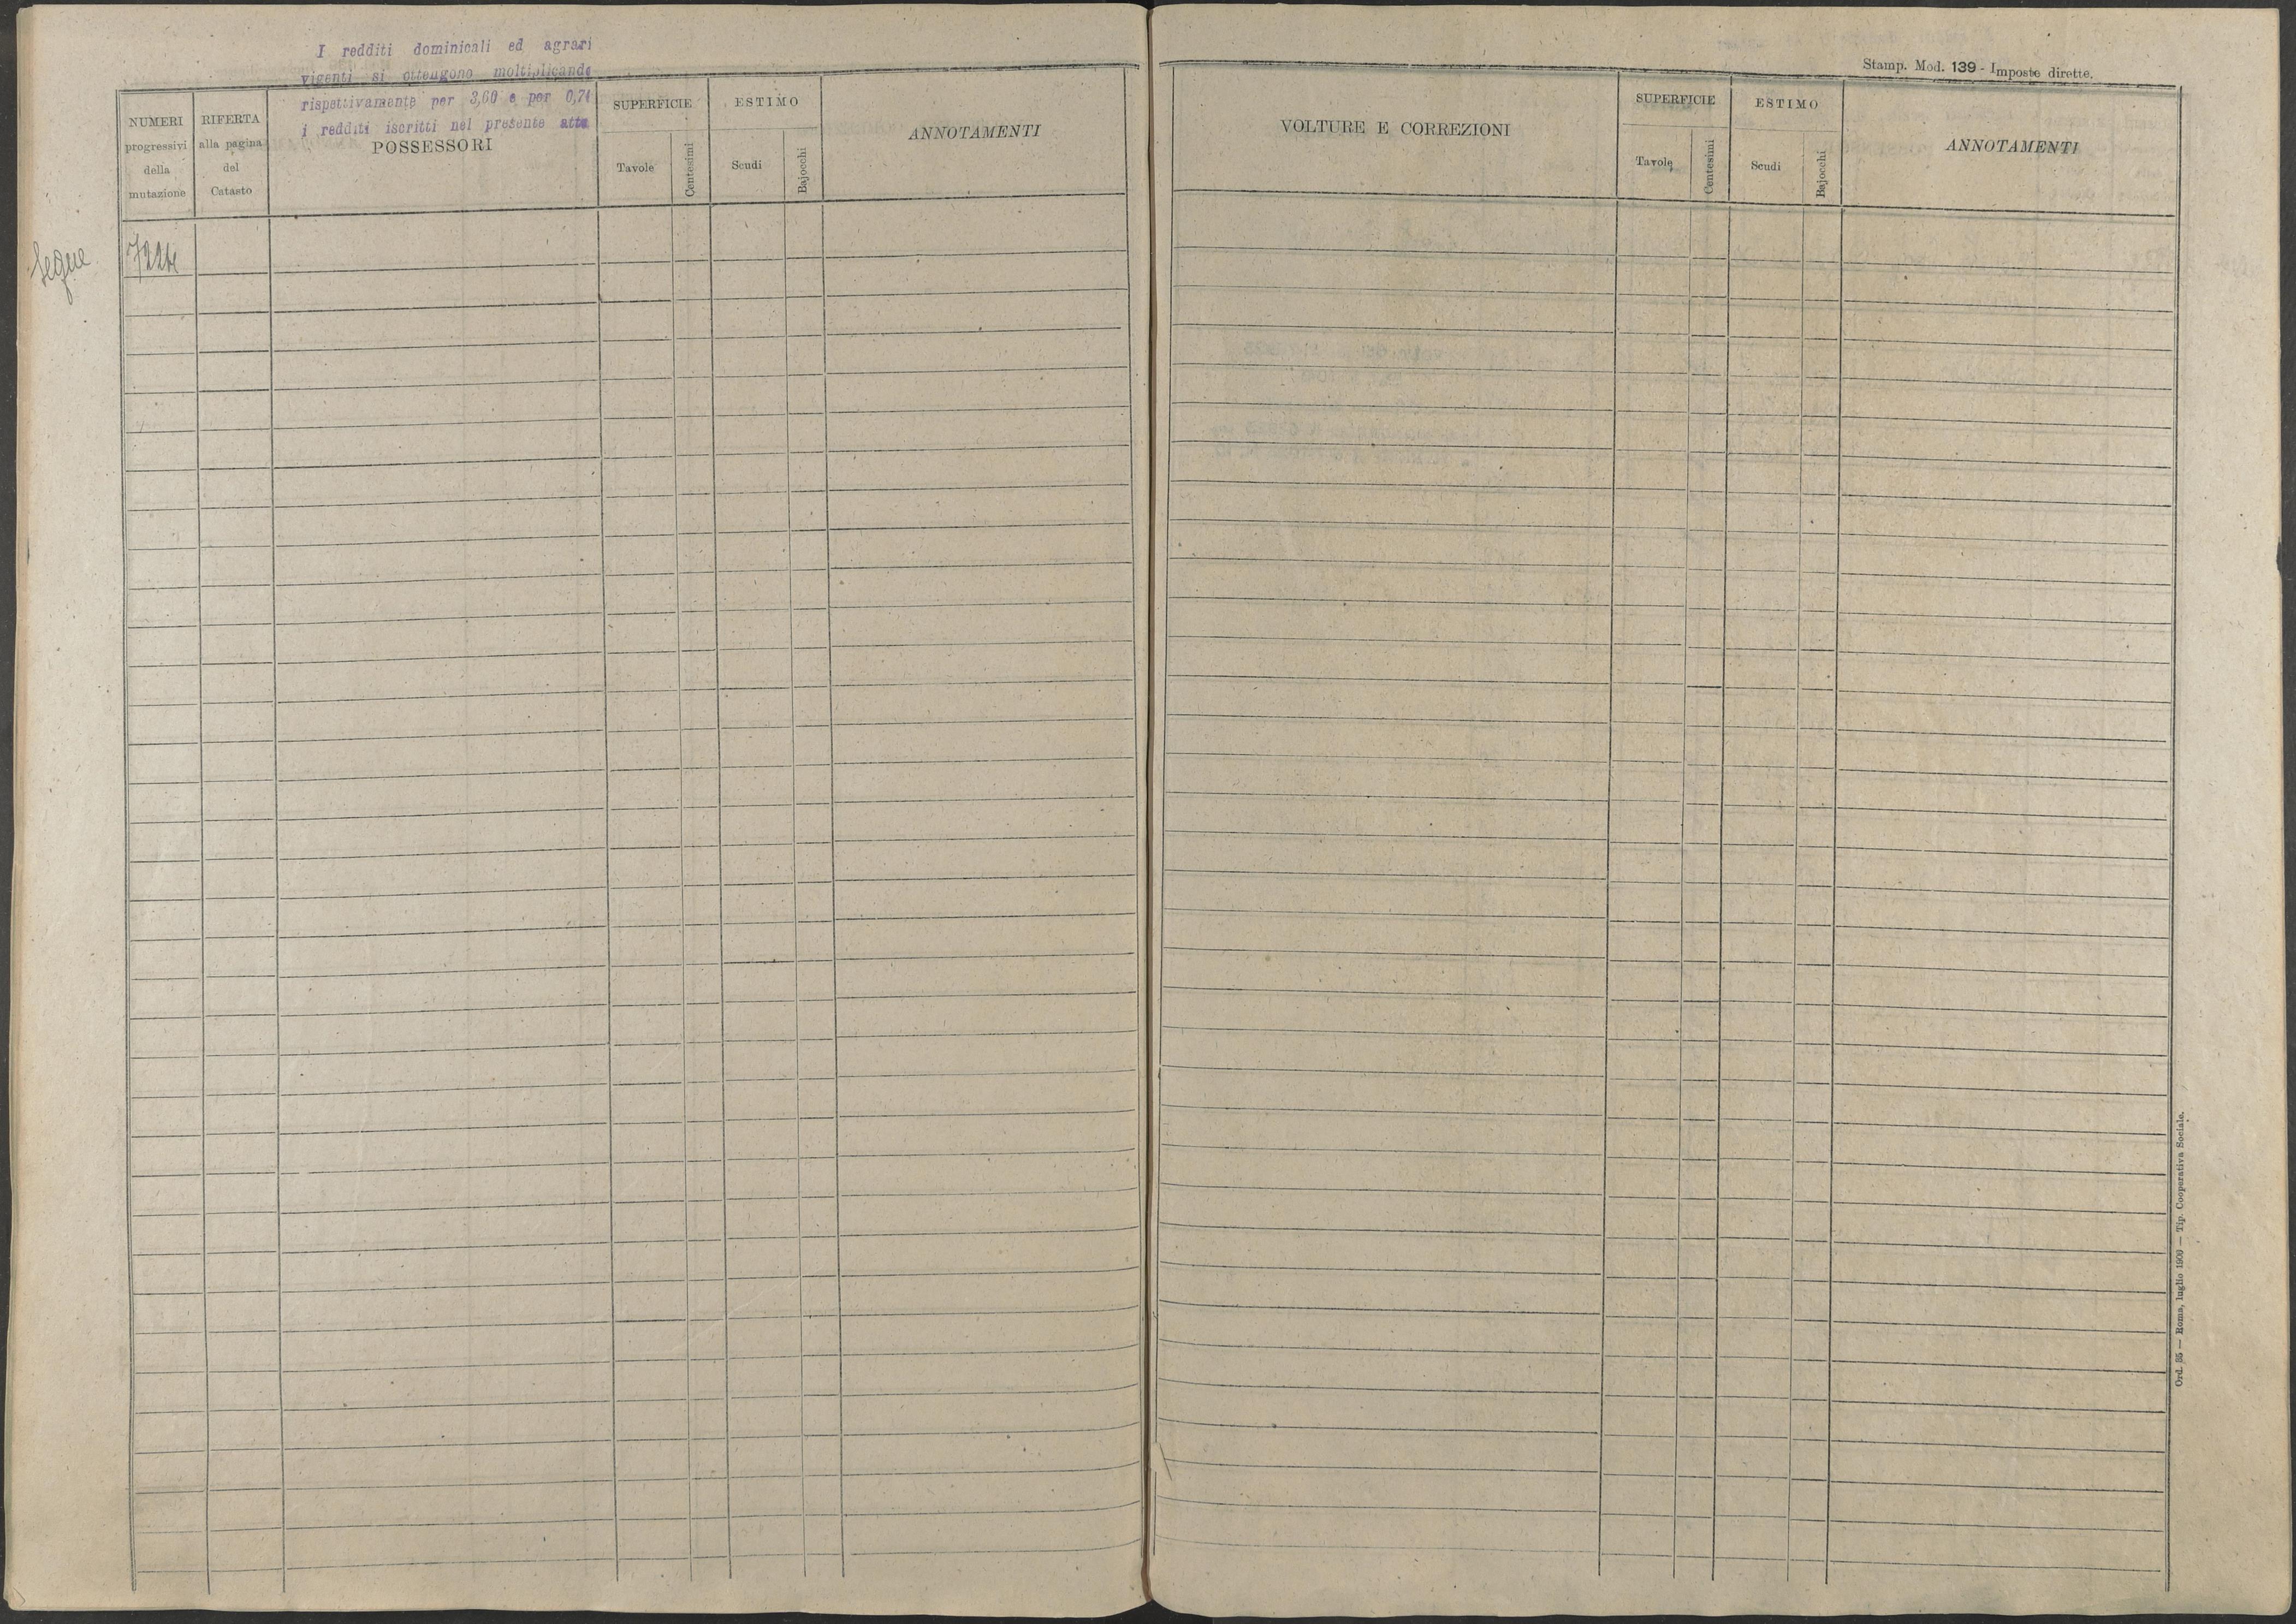 I redditi dominicali ed agrari
vigenti si ottengono moltiplicando
rispettivamente per 3,60 e per 0,71
i redditi iscritti nel presente atto
NUMERI
progressivi
della
mutazione
RIFERTA
alla pagina
del
Catasto
POSSESSORI
SUPERFICIE
Tavole
Centesimi
ESTIMO
Scudi
Bajocchi
ANNOTAMENTI
Segue
Stamp. Mod. 139 - Imposte dirette.
VOLTURE E CORREZIONI
SUPERFICIE
Tavole
Centesimi
ESTIMO
Scudi
Bajocchi
ANNOTAMENTI
Ord. 85 — Roma, luglio 1906 — Tip. Cooperativa Sociale.